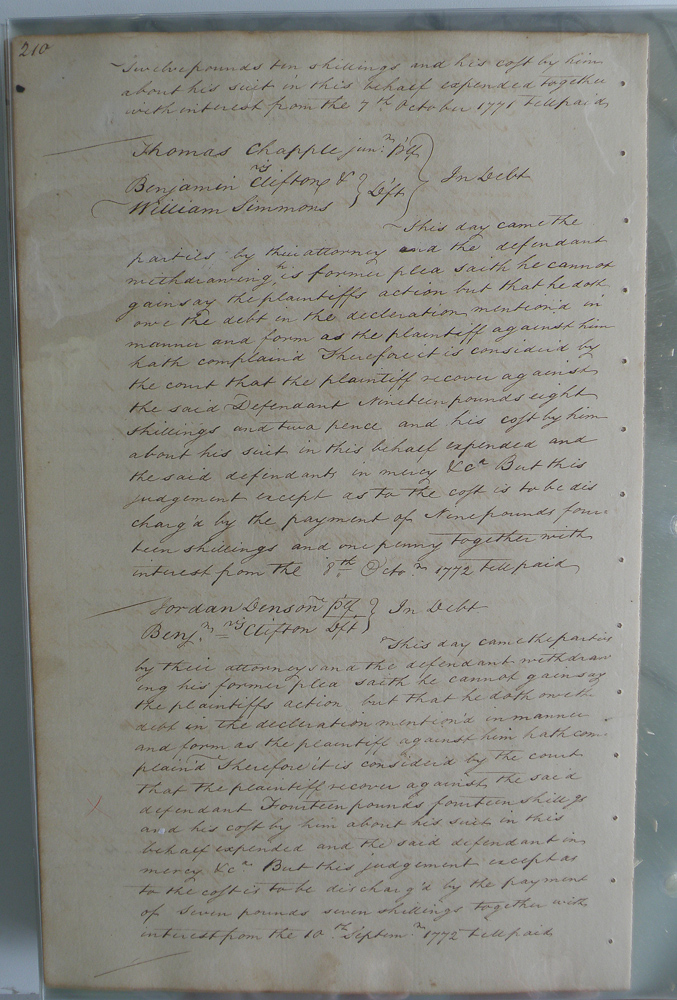 210
Twelve pounds ten shillings and his cost by him
about his suit in this behalf expended together
with interest from the 7th October 1771 till paid
Thomas Chapple junr. plt
Benjamin Clifton &
Dft
In Debt
William Simmons
This day came the
parties by their attorney and the defendant
withdrawing his former plea saith he cannot
gainsay the plaintiffs action but that he doth
owe the debt in the decleration mention'd in
manner and form as the plaintiff against him
hath complain'd Therefore it is consider'd by
the court that the plaintiff recover against
the said Defendant Nineteen pounds eight
shillings and two pence and his cost by him
about his suit in this behalf expended and
the said defendants in mercy &ca But this
judgement except as to the cost is to be dis
charg'd by the payment of Nine pounds four
teen shillings and one penny together with
interest from the 8th Octor 1772 till paid
Jordan Denson plt
In Debt
Benj. Clifton Dft
This day came the parties
by their attorneys and the defendant withdraw
ing his former plea saith he cannot gainsay
the plaintiffs action but that he doth owe the
debt in the decleration mention'd in manner
and form as the plaintiff against him hath com
plain'd Therefore it is consider'd by the court
that the plaintiff recover against the said
defendant Fourteen pounds fourteen shillgs
and his cost by him about his suit in this
behalf expended and the said defendant in
mercy &ca But this judgement except as
to the cost is to be discharg'd by the payment
of Seven pounds seven shillings together with
interest from the 10th Septemr 1772 till paid